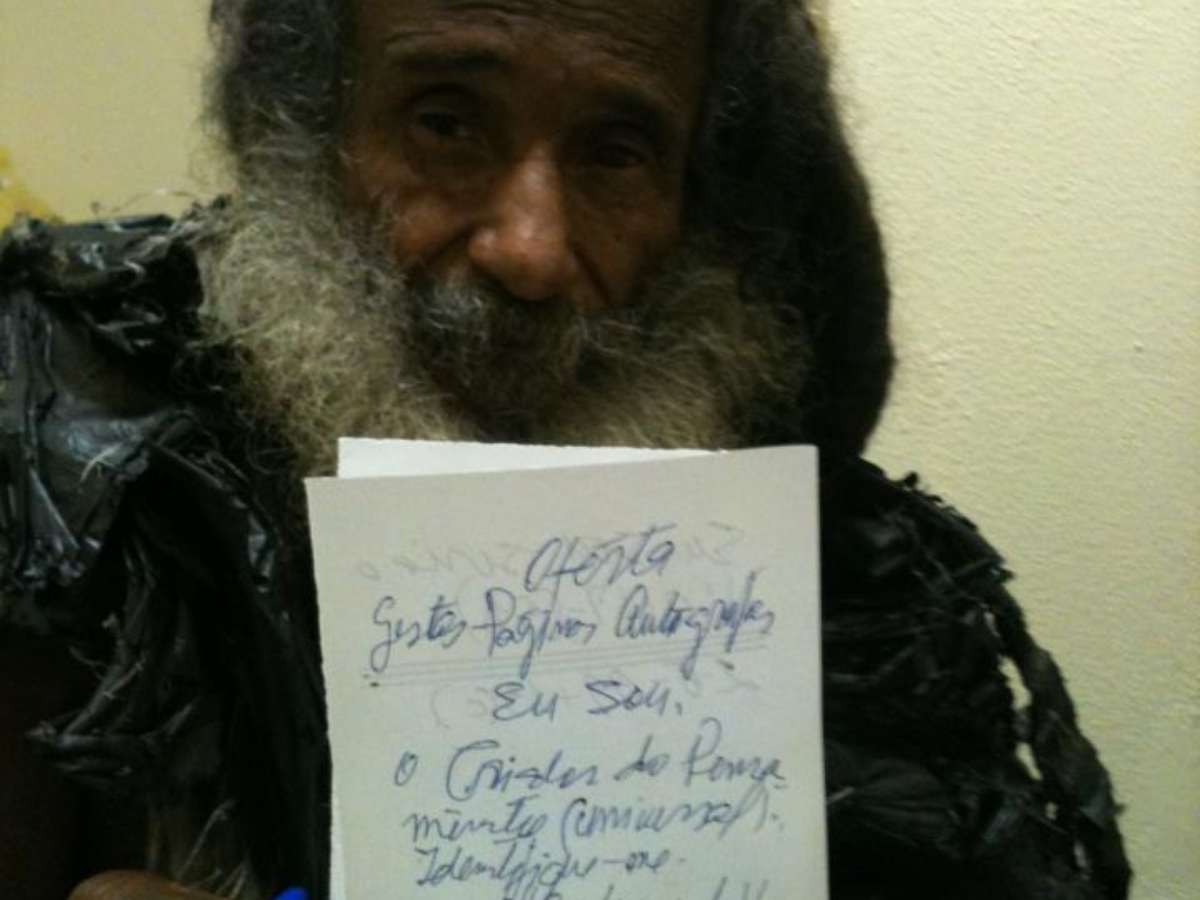 Oferta
Gestos-Paginas Autografas
Eu Sou.
O Criador do Pensa
mento Universal.
Identifique-me.